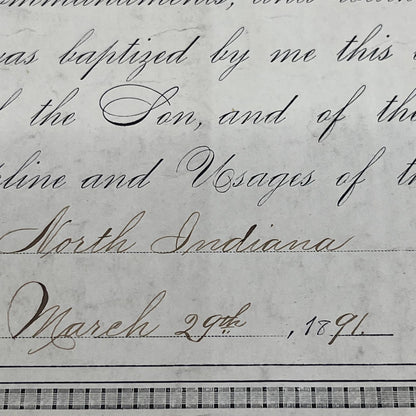 ommandments, and
was baptized by me this
the Son, and of the
line and Usages of
North Indiana
March 29th, 1891.